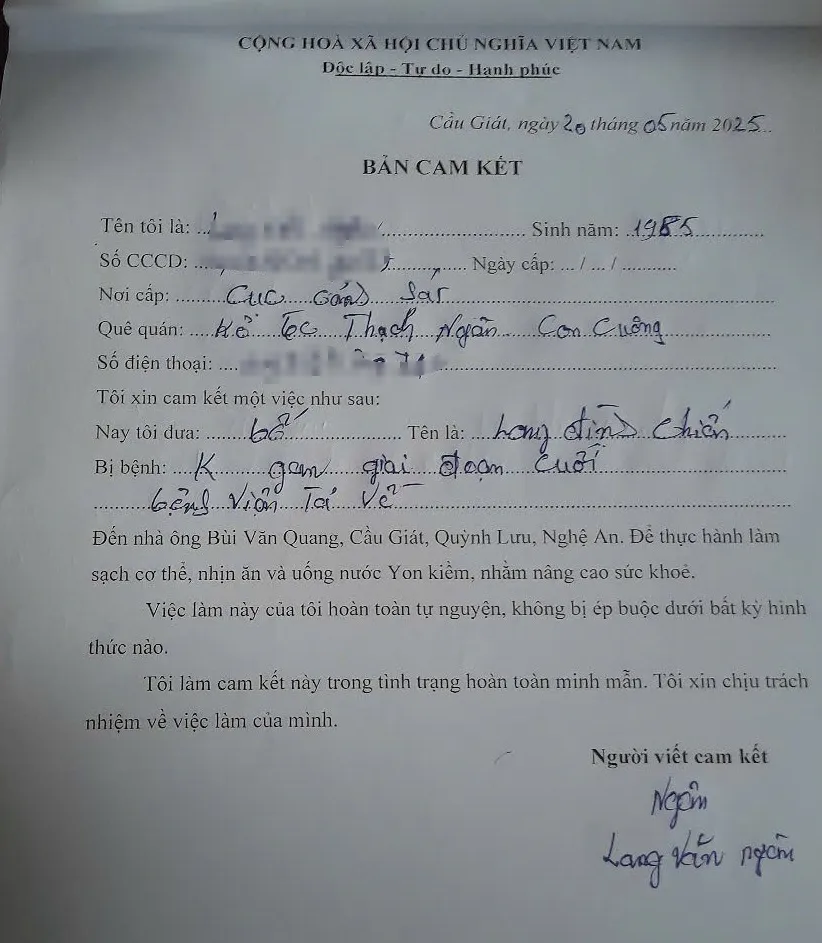 CỘNG HOÀ XÃ HỘI CHỦ NGHĨA VIỆT NAM
Độc lập - Tự do - Hạnh phúc
Cầu Giát, ngày 20 tháng 05 năm 2025...
BẢN CAM KẾT
Tên tôi là: ... Sinh năm: 1985
Số CCCD: ... Ngày cấp: ... / ... / ...
Nơi cấp: Cục Cảnh sát
Quê quán: Kẻ Tóc Thạch Ngàn Con Cuông
Số điện thoại: ...
Tôi xin cam kết một việc như sau:
Nay tôi đưa: bố Tên là: đình Chiến
Bị bệnh: K gan giai đoạn cuối
bệnh viện Trả về
Đến nhà ông Bùi Văn Quang, Cầu Giát, Quỳnh Lưu, Nghệ An. Để thực hành làm
sạch cơ thể, nhịn ăn và uống nước Yon kiềm, nhằm nâng cao sức khoẻ.
Việc làm này của tôi hoàn toàn tự nguyện, không bị ép buộc dưới bất kỳ hình
thức nào.
Tôi làm cam kết này trong tình trạng hoàn toàn minh mẫn. Tôi xin chịu trách
nhiệm về việc làm của mình.
Người viết cam kết
Ngân
Lang Văn Ngân